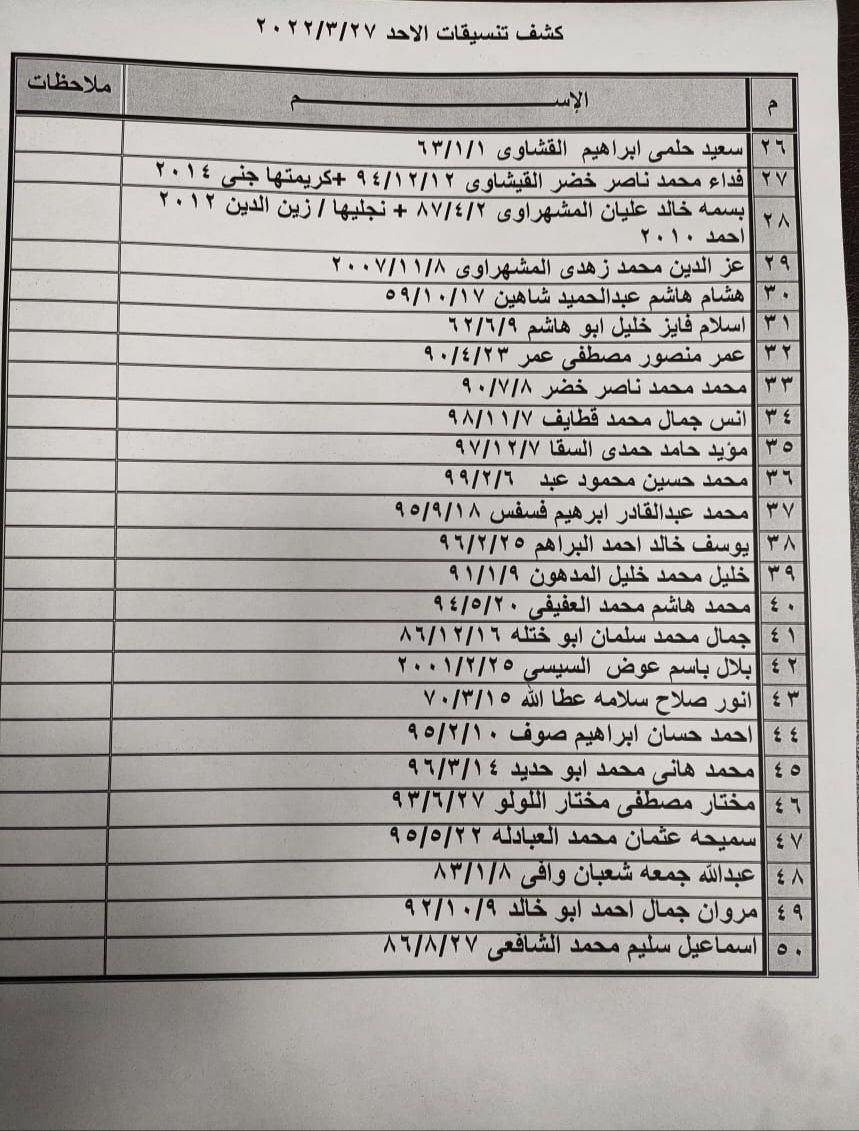 كشف تنسيقات الاحد ٢٠٢٢/٣/٢٧
م الإســـــــــــم ملاحظات
٢٦ سعيد حلمى ابراهيم القشاوى ٦٣/١/١
٢٧ فداء محمد ناصر خضر القيشاوى ٩٤/١٢/١٢ +كريمتها جنى ٢٠١٤
٢٨ بسمه خالد عليان المشهراوى ٨٧/٤/٢ + نجليها / زين الدين ٢٠١٢
احمد ٢٠١٠
٢٩ عز الدين محمد زهدى المشهراوى ٢٠٠٧/١١/٨
٣٠ هشام هاشم عبدالحميد شاهين ٥٩/١٠/١٧
٣١ اسلام فايز خليل ابو هاشم ٦٢/٦/٩
٣٢ عمر منصور مصطفى عمر ٩٠/٤/٢٣
٣٣ محمد محمد ناصر خضر ٩٠/٧/٨
٣٤ انس جمال محمد قطايف ٩٨/١١/٧
٣٥ مؤيد حامد حمدى السقا ٩٧/١٢/٧
٣٦ محمد حسين محمود عبد ٩٩/٢/٦
٣٧ محمد عبدالقادر ابرهيم فسفس ٩٥/٩/١٨
٣٨ يوسف خالد احمد البراهم ٩٦/٢/٢٥
٣٩ خليل محمد خليل المدهون ٩١/١/٩
٤٠ محمد هاشم محمد العفيفي ٩٤/٥/٢٠
٤١ جمال محمد سلمان ابو ختله ٨٦/١٢/١٦
٤٢ بلال باسم عوض السيسي ٢٠٠١/٢/٢٥
٤٣ انور صلاح سلامه عطا الله ٧٠/٣/١٥
٤٤ احمد حسان ابراهيم صوف ٩٥/٢/١٠
٤٥ محمد هانى محمد ابو حديد ٩٦/٣/١٤
٤٦ مختار مصطفى مختار اللولو ٩٣/٦/٢٧
٤٧ سميحه عثمان محمد العبادله ٩٥/٥/٢٢
٤٨ عبدالله جمعه شعبان وافى ٨٣/١/٨
٤٩ مروان جمال احمد ابو خالد ٩٢/١٠/٩
٥٠ اسماعيل سليم محمد الشافعى ٨٦/٨/٢٧